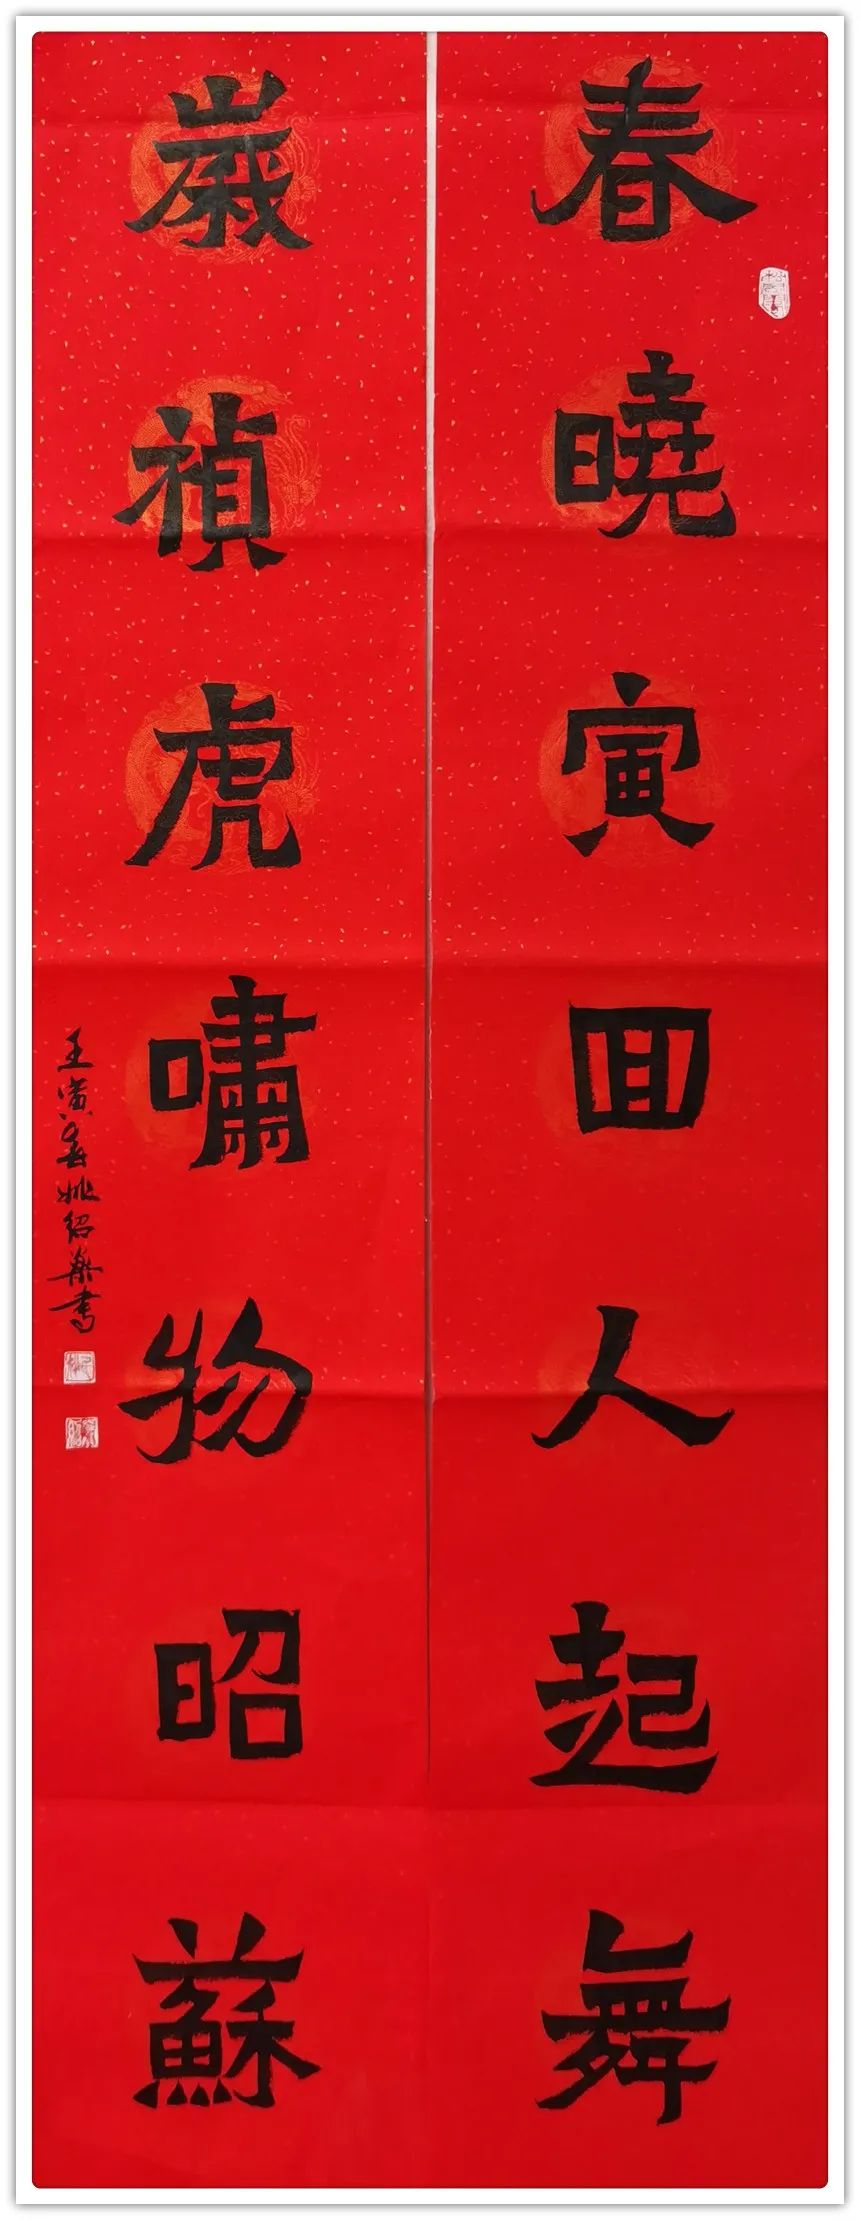 春曉寅回人起舞
歲禎虎嘯物昭蘇
壬寅春姚紹燊書